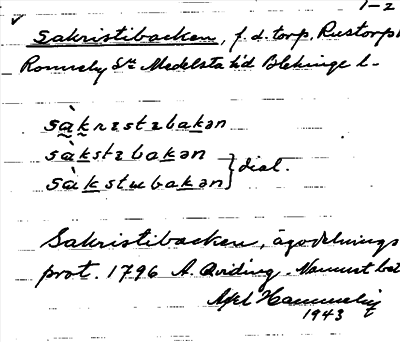 1-2
Sakristibacken, f. d. torp. Rustorp
Ronneby Sn Medelsta hd Blekinge l.
sàkrɪstɪbakən
sàkstɪbakən
sàkstɯbakən } dial.
Sakristibacken, ägodelnings
prot. 1796 A. Qviding. Namnet bet
Axel Hammelig
1943